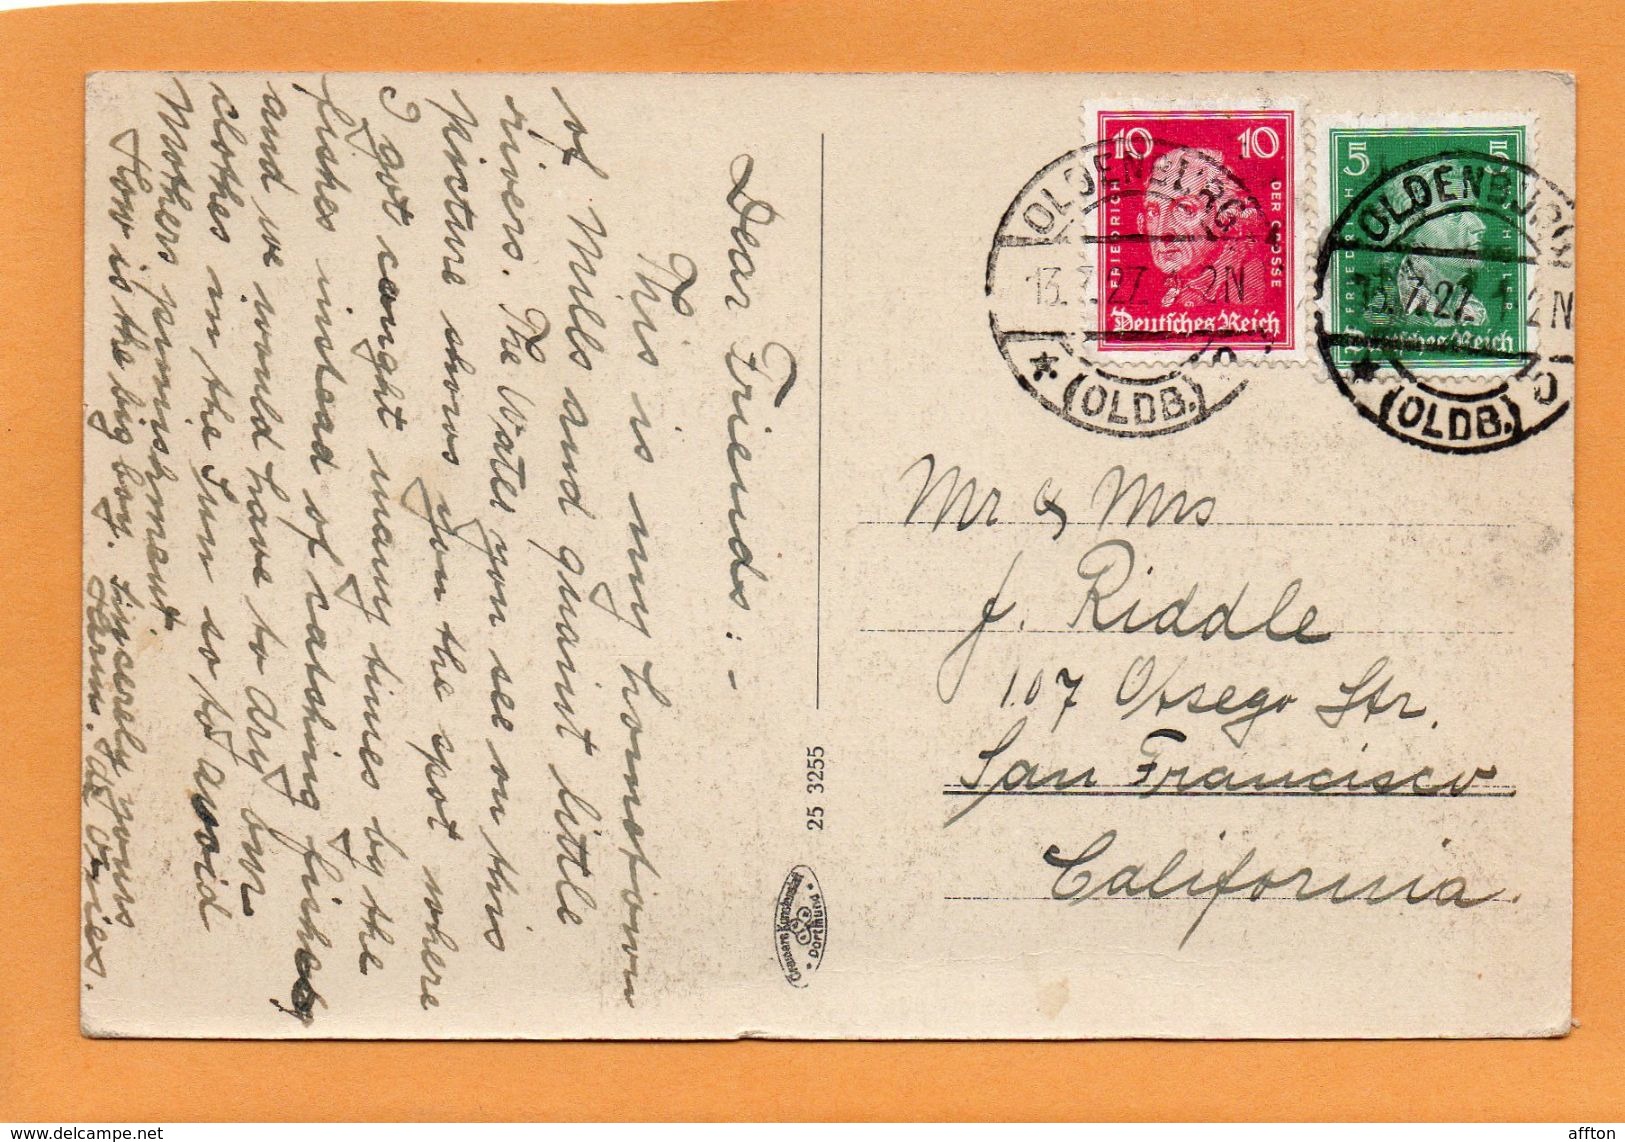 Dear Friends:-
This is my hometown
of Mills and quaint little
rivers. The Water you see on this
picture shows you the spot where
I got caught many times by the
fishes instead of catching fishes
and we would have to dry our
clothes in the Sun so to avoid
Mothers punishment
How is the big boy. Sincerely yours
Herm. de Vries.
25 3255
Cramers Kunstanstalt
Dortmund
10 10
FRIEDRICH DER GROSSE
Deutsches Reich
5 5
FRIEDRICH
Deutsches Reich
OLDENBURG
13.7.27. 1-2N
(OLDB.)
OLDENBURG
13.7.27. 1-2N
(OLDB.)
Mr & Mrs
J. Riddle
107 Otsego Str.
San Francisco
California.
delcampe.net
affton